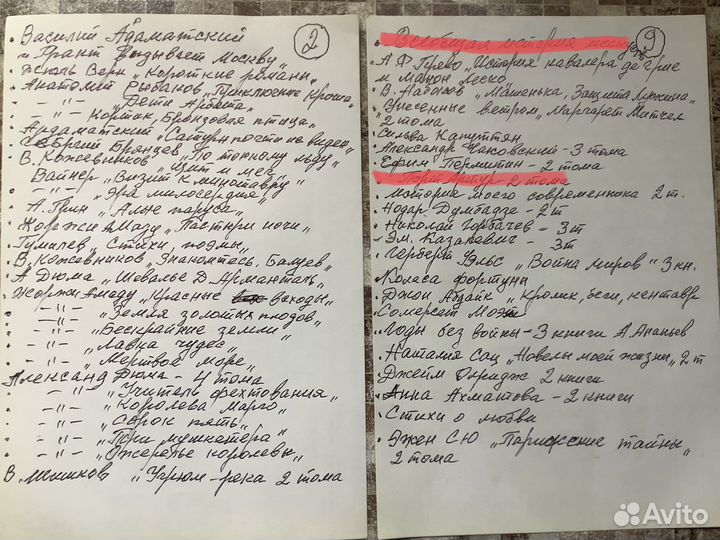 2
• Василий Адаматский
„Грант вызывает Москву"
• Жюль Верн „Короткие романы"
• Анатолий Рыбаков „Приключение Кроша"
• -"- „Дети Арбата"
• -"- „Кортик, Бронзовая птица"
• Ардаматский „Сатурн почти не виден"
• Георгий Брянцев „По тонкому льду"
• В. Кожевников „Щит и меч"
• Вайнер „Визит к минотавру"
• -"- „Эра милосердия"
• А. Грин „Алые паруса"
• Жоржи Амаду „Пастыри ночи"
• Гумилев „Стихи, поэмы"
• В. Кожевников „Знакомтесь, Балуев"
• А Дюма „Шевалье Д, Арманталь"
• Жоржи Амаду „Красные всходы"
• -"- „Земля золотых плодов"
• -"- „Бескрайние земли"
• -"- „Лавка чудес"
• -"- „Мертвое море"
• Александ Дюма - 4 тома
• -"- „Учитель фехтования"
• -"- „Королева Марго"
• -"- „Сорок пять"
• -"- „Три мушкетера"
• -"- „Ожерелье королевы"
В. Шишков „Угрюм-река 2 тома
9
• Всеобщая история
• А Ф Прево „История кавалера де Грие
и Манон Леско
• В. Набоков „Машенька, Защита Лужина"
• „Унесенные ветром" Маргарет Митчел
2 тома
• Сильва Капутикян
• Александр Чаковский - 3 тома
• Ефим Пермитин - 2 тома
• Порт Артур - 2 тома
• История моего современника 2 т.
• Нодар Думбадзе - 2т
• Николай Горбачев - 3т
• Эм. Казакевич - 3т
• Герберт Уэльс „Война миров" 3 кн.
• Колеса фортуны
• Джон Апдайк „Кролик, беги, кентавр
• Сомерсет Моэм
• Годы без войны - 3 книги А. Ананьев
• Наталия Сац „Новелы моей жизни" 2 т
• Джеймс Олридж 2 книги
• Анна Ахматова - 2 книги
• Стихи о любви
• Эжен Сю „Парижские тайны"
2 тома
Avito